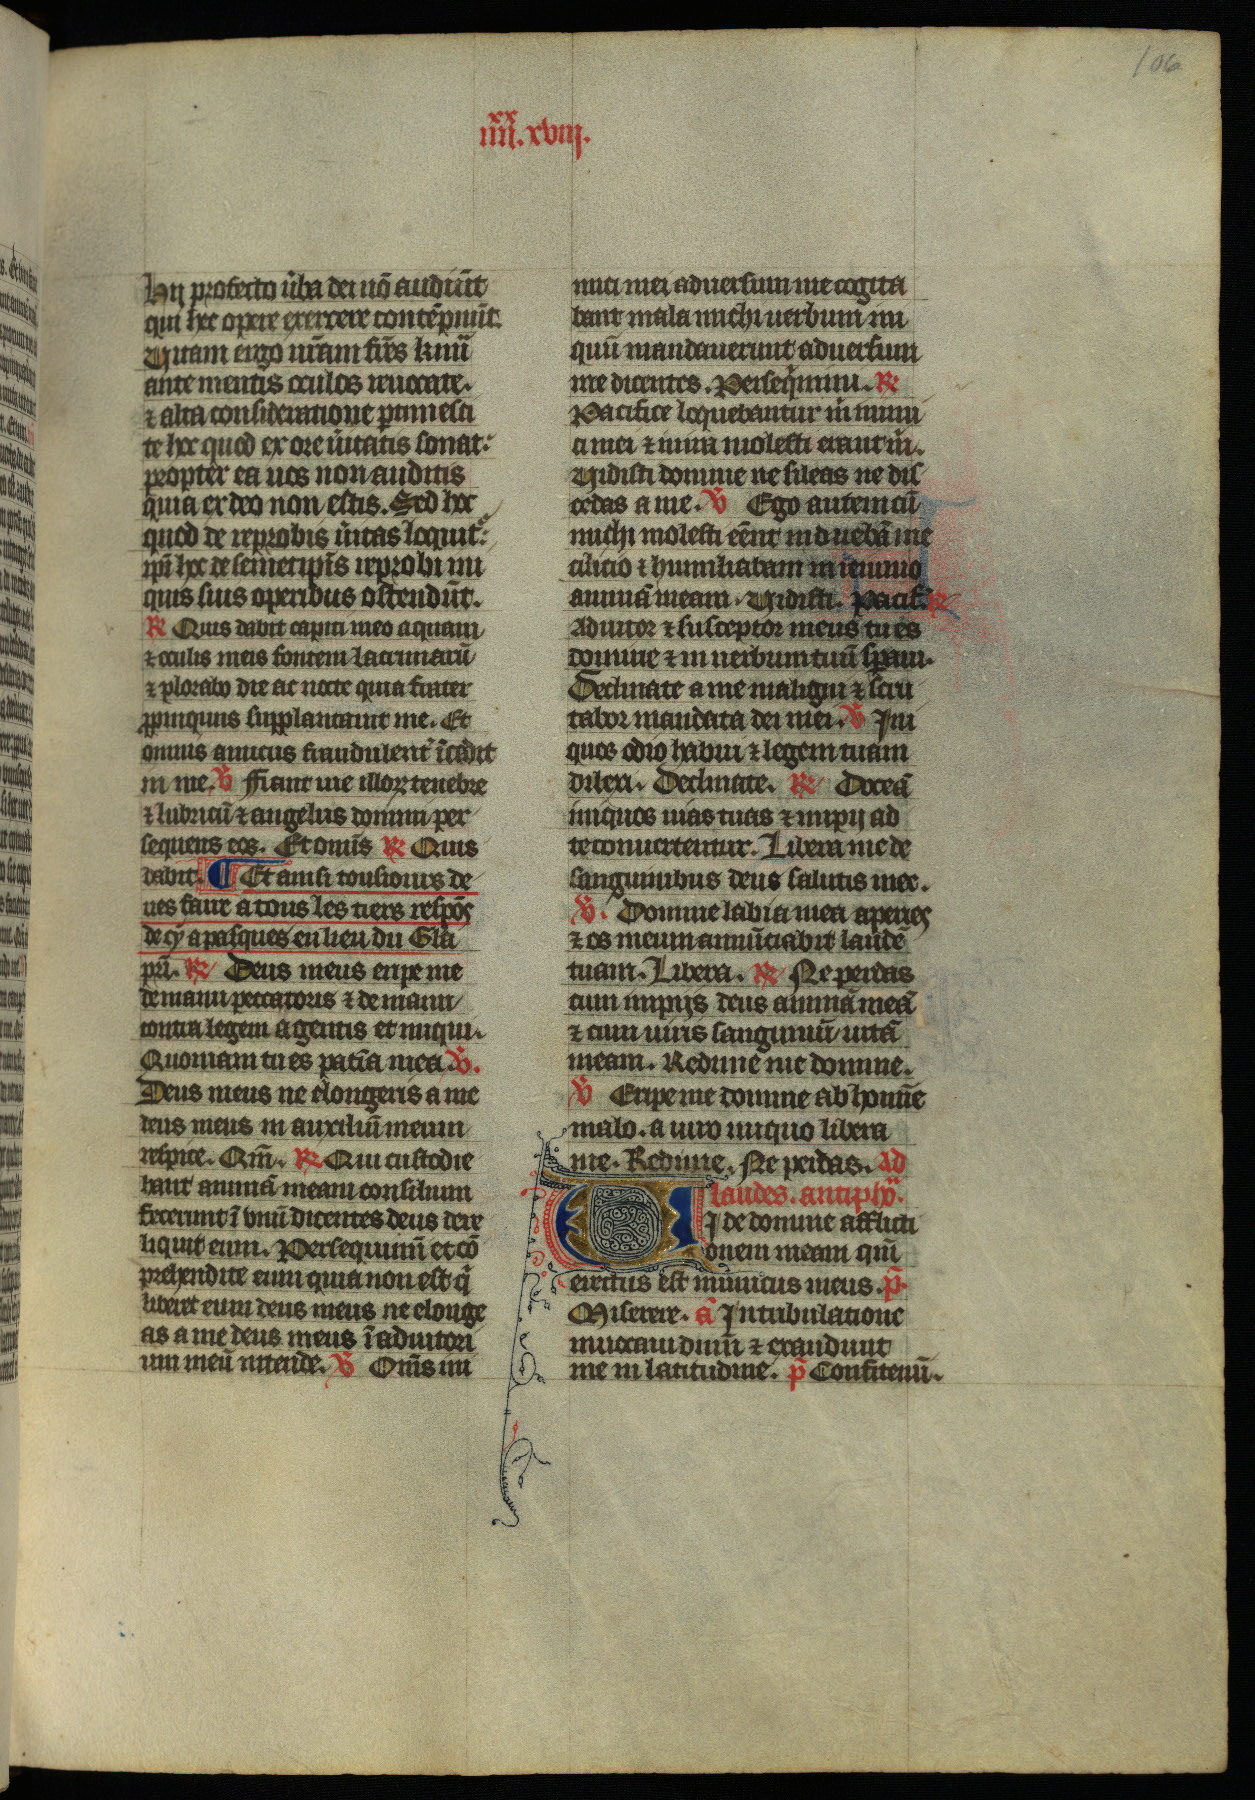 106
iiii.xx xviij.
Hij profecto ūba dei nō audiūt
qui hec opere exercere contēpnūt.
Vitam ergo ur̄am fr̄es km̄i
ante mentis oculos reuocate.
⁊ alta consideratione ptimesci
te hec quod ex ore ūitatis sonat:
propter ea uos non auditis
quia ex deo non estis. Sed hec
quod de reprobis ūitas loquit̄:
ipi hec de semetip̄is reprobi ini
quis suis operibus ostendūt.
℟ Quis dabit capiti meo aquam
⁊ oculis meis fontem lacrimarū
⁊ plorabo die ac nocte quia frater
ppinquus supplantauit me. Et
omnis amicus fraudulent̄ īcedit
in me. ℣ Fiant uie illoꝝ tenebre
⁊ lubricū ⁊ angelus domini per
sequens eos. Et om̄is ℟ Quis
dabit. ¶ Et ainsi tousiours de
ues faire a tous les tiers respōs
de cy a pasques en lieu du Glā
pri. ℟ Deus meus eripe me
de manu peccatoris ⁊ de manu
contra legem agentis et iniqui.
Quoniam tu es patiā mea. ℣.
Deus meus ne elongeris a me
deus meus in auxiliū meum
respice. Qm̄. ℟ Qui custodie
bant animā meam consilium
fecerunt ī vnū dicentes deus dere
liquit eum. Persequimī et cō
prehendite eum quia non est q̄
liberet eum deus meus ne elonge
as a me deus meus ī adiutori
um meū intende. ℣ Om̄s ini
mici mei aduersum me cogita
bant mala michi uerbum ini
quū mandauerunt aduersum
me dicentes. Perseq̄mini. ℟
Pacifice loquebantur m̄ inimi
ci mei ⁊ in ira molesti erant m̄.
Vidisti domine ne sileas ne dis
cedas a me. ℣ Ego autem cū
michi molesti eēnt induebā me
cilicio ⁊ humiliabam in ieiunio
animā meam. Vidisti. Pacif̄. ℟
Adiutor ⁊ susceptor meus tu es
domine ⁊ in uerbum tuū sp̄aui.
Declinate a me maligni ⁊ scru
tabor mandata dei mei. ℣ Ini
quos odio habui ⁊ legem tuam
dilexi. Declinate. ℟ Doceā
iniquos uias tuas ⁊ impij ad
te conuertentur. Libera me de
sanguinibus deus salutis mee.
℣. Domine labia mea aperies
⁊ os meum annūciabit laudē
tuam. Libera. ℟ Ne perdas
cum impijs deus animā meā
⁊ cum uiris sanguinū uitā
meam. Redime me domine.
℣ Eripe me domine ab homīe
malo. a uiro iniquo libera
me. Redime. Ne perdas. Ad
laudes. antiphō.
VIde domine afflicti
onem meam qm̄
erectus est inimicus meus. p̄.
Miserere. ā In tribulatione
inuocaui dnm̄ ⁊ exaudiuit
me in latitudine. p̄ Confitemī.